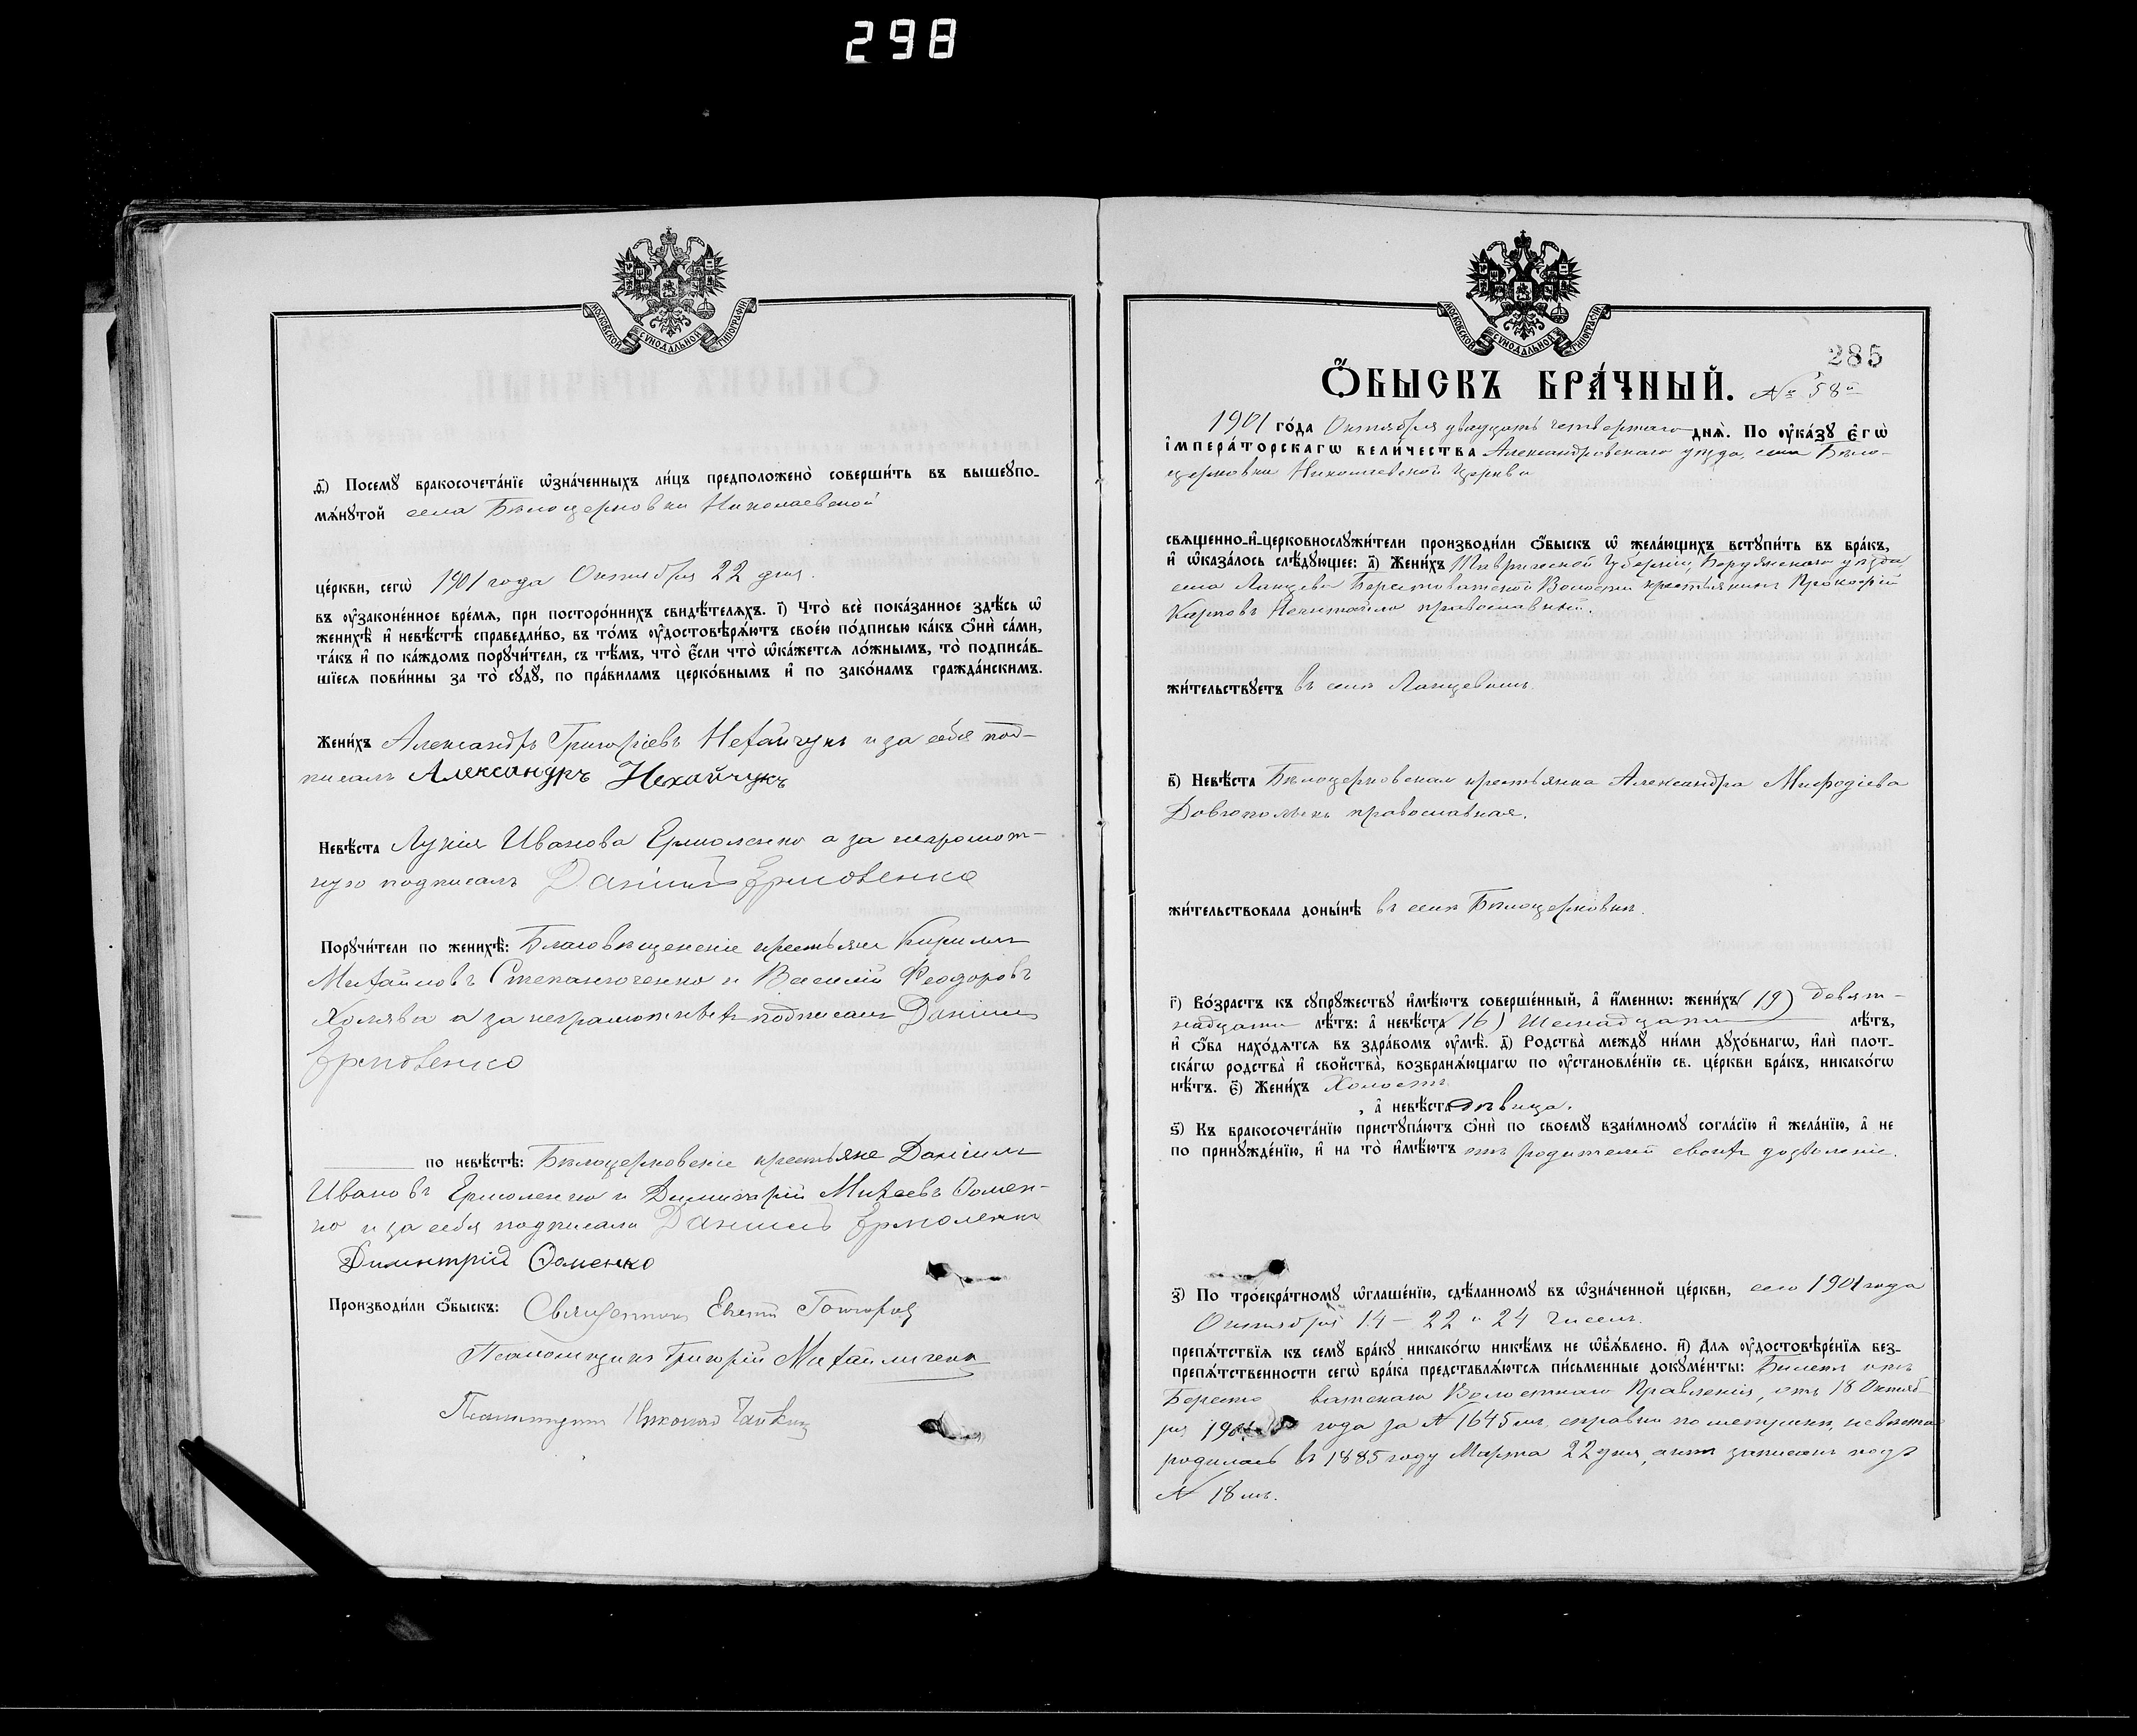 298
МОСКОВСКОЙ СУНОДАЛЬНОЙ ТИПОГРАФІИ
ѳ҃) Посемꙋ бракосочета́нїе ѡ҆зна́ченныхъ ли́цъ предположено̀ соверши́ть въ вышеꙋпо-
мѧ́нꙋтой села Бѣлоцерковки Николаевской
це́ркви, сегѡ̀ 1901 года Октября 22 дня.
въ ᲂу҆зако́ненное вре́мѧ, при посторо́ннихъ свидѣ́телѧхъ. і҃) Что̀ всѐ пока́занное здѣ́сь ѡ҆
женихѣ̀ и҆ невѣ́стѣ справедли́во, въ то́мъ ᲂу҆достовѣрѧ́ютъ свое́ю по́дписью ка́къ ѻ҆нѝ са́ми,
та́къ и҆ по ка́ждомъ порꙋчи́тели, съ тѣ́мъ, что̀ є҆́сли что̀ ѡ҆ка́жетсѧ ло́жнымъ, то̀ подписа́в-
шїесѧ пови́нны за то̀ сꙋдꙋ̀, по пра́виламъ церко́внымъ и҆ по зако́намъ гражда́нскимъ.
Жени́хъ Александръ Григоріевъ Нехайчукъ и за себя под-
писалъ Александръ Нехайчукъ
Невѣ́ста Лукія Иванова Ермоленко а за неграмот-
ную подписалъ Даніилъ Ермоленко
Порꙋчи́тели по женихѣ̀: Благовѣщенскіе крестьяне Кириллъ
Михайловъ Степанюченко и Василій Феодоровъ
Холява а за неграмотныхъ подписалъ Даніилъ
Ермоленко
по невѣ́стѣ: Бѣлоцерковскіе крестьяне Даніилъ
Ивановъ Ермоленко и Димитрій Михеевъ Ѳомен-
ко и за себя подписали Даніилъ Ермоленко
Димитрій Ѳоменко
Производи́ли ѻ҆́быскъ: Священникъ
Псаломщикъ Григорій Михайличенко
Псаломщикъ Николай
МОСКОВСКОЙ СУНОДАЛЬНОЙ ТИПОГРАФІИ
285
Ѻ҆́БЫСКЪ БРА́ЧНЫЙ. № 58й
1901 го́да Октября двадцать четвертаго днѧ̀. По ᲂу҆ка́зꙋ є҆гѡ̀
і҆мпера́торскагѡ вели́чества Александровскаго уѣзда, села Бѣло-
церковки Николаевской Церкви
свѧще́нно-и҆-церковнослꙋжи́тели производи́ли ѻ҆́быскъ ѡ҆ жела́ющихъ встꙋпи́ть въ бра́къ,
и҆ ѡ҆каза́лось слѣ́дꙋющее: а҃) Жени́хъ Таврической Губерніи, Бердянскаго уѣзда
села Ланцева Берестоватской Волости крестьянинъ Прокофій
Карповъ православный.
жи́тельствꙋетъ въ селѣ Ланцевомъ.
в҃) Невѣ́ста Бѣлоцерковская крестьянка Александра Мефодіева
Довгополыкъ православная.
жи́тельствовала доны́нѣ въ селѣ Бѣлоцерковкѣ.
г҃) Во́зрастъ къ сꙋпрꙋ́жествꙋ и҆мѣ́ютъ соверше́нный, а҆ и҆́меннѡ: жени́хъ (19) девят-
надцати лѣ́тъ: а҆ невѣ́ста (16) Шестнадцати лѣ́тъ,
и҆ ѻ҆́ба нахо́дѧтсѧ въ здра́вомъ ᲂу҆мѣ̀. д҃) Родства̀ междꙋ̀ ни́ми дꙋхо́внагѡ, и҆лѝ плот-
ска́гѡ родства̀ и҆ сво́йства, возбранѧ́ющагѡ по ᲂу҆становле́нїю св. це́ркви бра́къ, никако́гѡ
нѣ́тъ. є҃) Жени́хъ Холостъ
, а҆ невѣ́ста дѣвица.
ѕ҃) Къ бракосочета́нїю пристꙋпа́ютъ ѻ҆нѝ по своемꙋ̀ взаи́мномꙋ согла́сїю и҆ жела́нїю, а҆ не
по принꙋжде́нїю, и҆ на то̀ и҆мѣ́ютъ отъ родителей своихъ дозволеніе.
з҃) По троекра́тномꙋ ѡ҆глаше́нїю, сдѣ́ланномꙋ въ ѡ҆зна́ченной це́ркви, сего 1901 года
Октября 14 – 22 и 24 чиселъ.
препѧ́тствїѧ къ семꙋ̀ бра́кꙋ никако́гѡ никѣ́мъ не ѡ҆б̾ѧ́влено. и҃) Длѧ ᲂу҆достовѣре́нїѧ без-
препѧ́тственности сегѡ̀ бра́ка представлѧ́ютсѧ пи́сьменные докꙋме́нты: Билетъ отъ
Бересто ватскаго Волостнаго Правленія, отъ 18 Октяб-
ря 1901 года за № 1645мъ, справки по метрикѣ, невѣста
родилась въ 1885 году Марта 22 дня, актъ записанъ подъ
№ 18мъ.